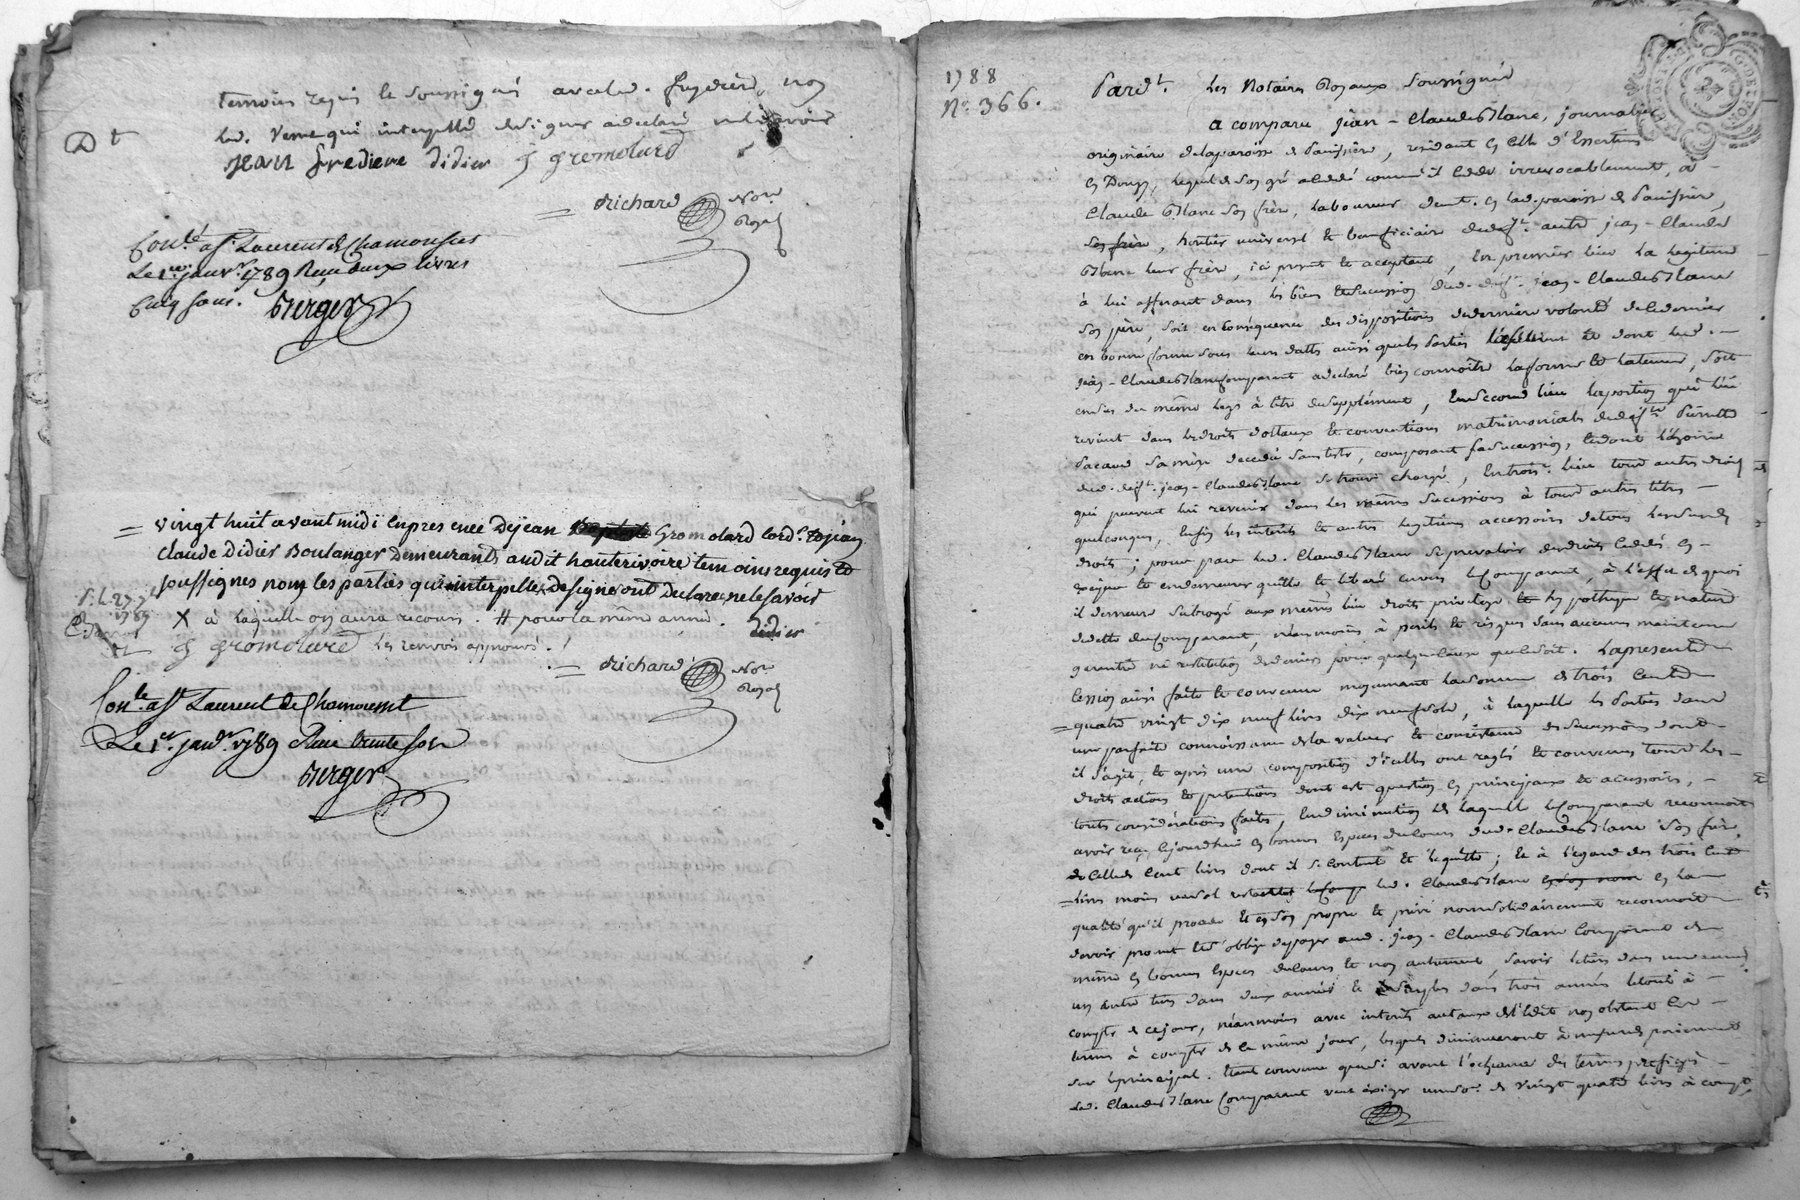 temoins requis le soussignés avec led. fredière, non
led. Verne qui interpellé de signer a declaré ne le savoir
Jean fredière didier J gromolard
richard Nore.
Royal
Conlé. a St. Laurent de Chamousset
Le 1er. janvr. 1789 Reçu deux livres
Cinq sous. Berger
= vingt huit avant midi en presence de jean gromolard cord. et jean
claude Didier Boulanger Demeurants audit hauterivoire temoins requis et
soussignés non les parties qui interpellées de signer ont declaré ne le savoir
X à laquelle on aura recours. # pour la même année. didier
J gromolard les renvois approuvés.
richard Nore.
Royal
Conle. a St Laurent de Chamousset
Le 1er. janvr. 1789 Reçu trente sols
Berger
1788
No. 366.
Pardt. Les Notaires Royaux soussignés
a comparu jean-Claude Blanc, journalier
originaire de la paroisse de Panissière, résidant en celle d'Essertines
en Donzy, lequel de son gré a cédé comme il cède irrévocablement, à
Claude Blanc son frère, laboureur demt. en lad. paroisse de Panissière,
son frère, héritier universel et beneficiaire de deft. autre jean-Claude
Blanc leur frère, ici présent et acceptant, En premier lieu la legitime
à lui afferant dans les biens et succession dud. deft. jean-Claude Blanc
son père, soit en conséquence des dispositions de dernière volonté de ce dernier
en bonne forme sous leurs dattes ainsi que les Parties et dont led.
jean-Claude Blanc comparant a declaré bien connoitre la forme et la teneur, soit
encas du même legs à titre de supplément, En second lieu la portion qui lui
revient dans les droits dottaux et conventions matrimoniales de defte. Pierrette
Pacaud sa mère decedée sans tester, composant sa succession, et dont l'hoirie
dud. deft. jean-Claude Blanc se trouve chargé, En trois. lieu tous autres droits
qui peuvent lui revenir dans les mêmes successions à tous autres titres
quelconques, Enfin les interets et autres legitimes accessoires de tous lesdits
droits; pour par led. Claude Blanc se prevaloir des droits cédés en
exiger et en demeurer quitte et liberé envers le Comparant, à l'effet de quoi
il demeure subrogé aux mêmes lieu droits privilege et hypotheque et nature
de dette du Comparant, néanmoins à perils et risques sans aucune maintenue
garantie ni restitution de deniers pour quelque cause que ce soit. La presente
cession ainsi faite et convenue moyennant la somme de trois cent
= quatre vingt dix neuf livres dix neuf sols, à laquelle les Parties dans
une parfaite connoissance de la valeur et consistance des successions dont
il s'agit, et après une composition d'icelles ont reglé et convenu tous les
droits actions et pretentions dont est question en principaux et accessoires,
toutes considérations faites, En diminution de laquelle le Comparant reconnoit
avoir reçu cejourdhui en bonnes Especes du cours dud. Claude Blanc son frère,
celle de Cent livres dont il se contente et l'equitte; et à l'égard des trois cent
= livres moins un sol restantes led. Claude Blanc en la
qualité qu'il procede et en son propre et privé nom solidairement reconnoit
devoir promet et s'oblige de payer aud. jean-Claude Blanc Comparant de
même en bonnes Especes du cours et non autrement savoir le tiers dans une année
un autre tiers dans deux années et dans trois années le tout à
compter de ce jour, néanmoins avec interets au taux de l'édit non obstant les
termes à compter de ce même jour, lesquels diminueront à mesure des paiements
sur le principal. Etant convenu que si avant l'echéance des termes prefigés
led. Claude Blanc Comparant veut exiger une so. de vingt quatre livres à compte,